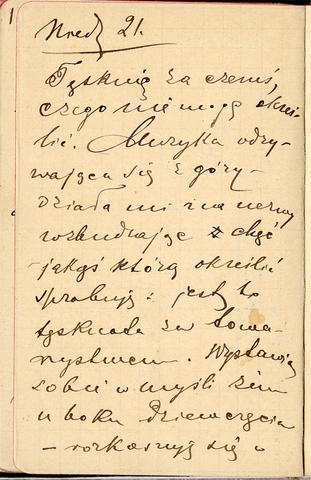 1
21.
Tęsknię za czemś,
czego nie mogę okreś-
lić. Muzyka odzy-
wająca się z góry -
działa mi na nerwy
rozbudzając chęć
jakąś którą określić
spróbuję: jest to
tęsknota za towa-
rzystwem. Wystawiam
sobie w myśli żem
u boku dziewczęcia
-